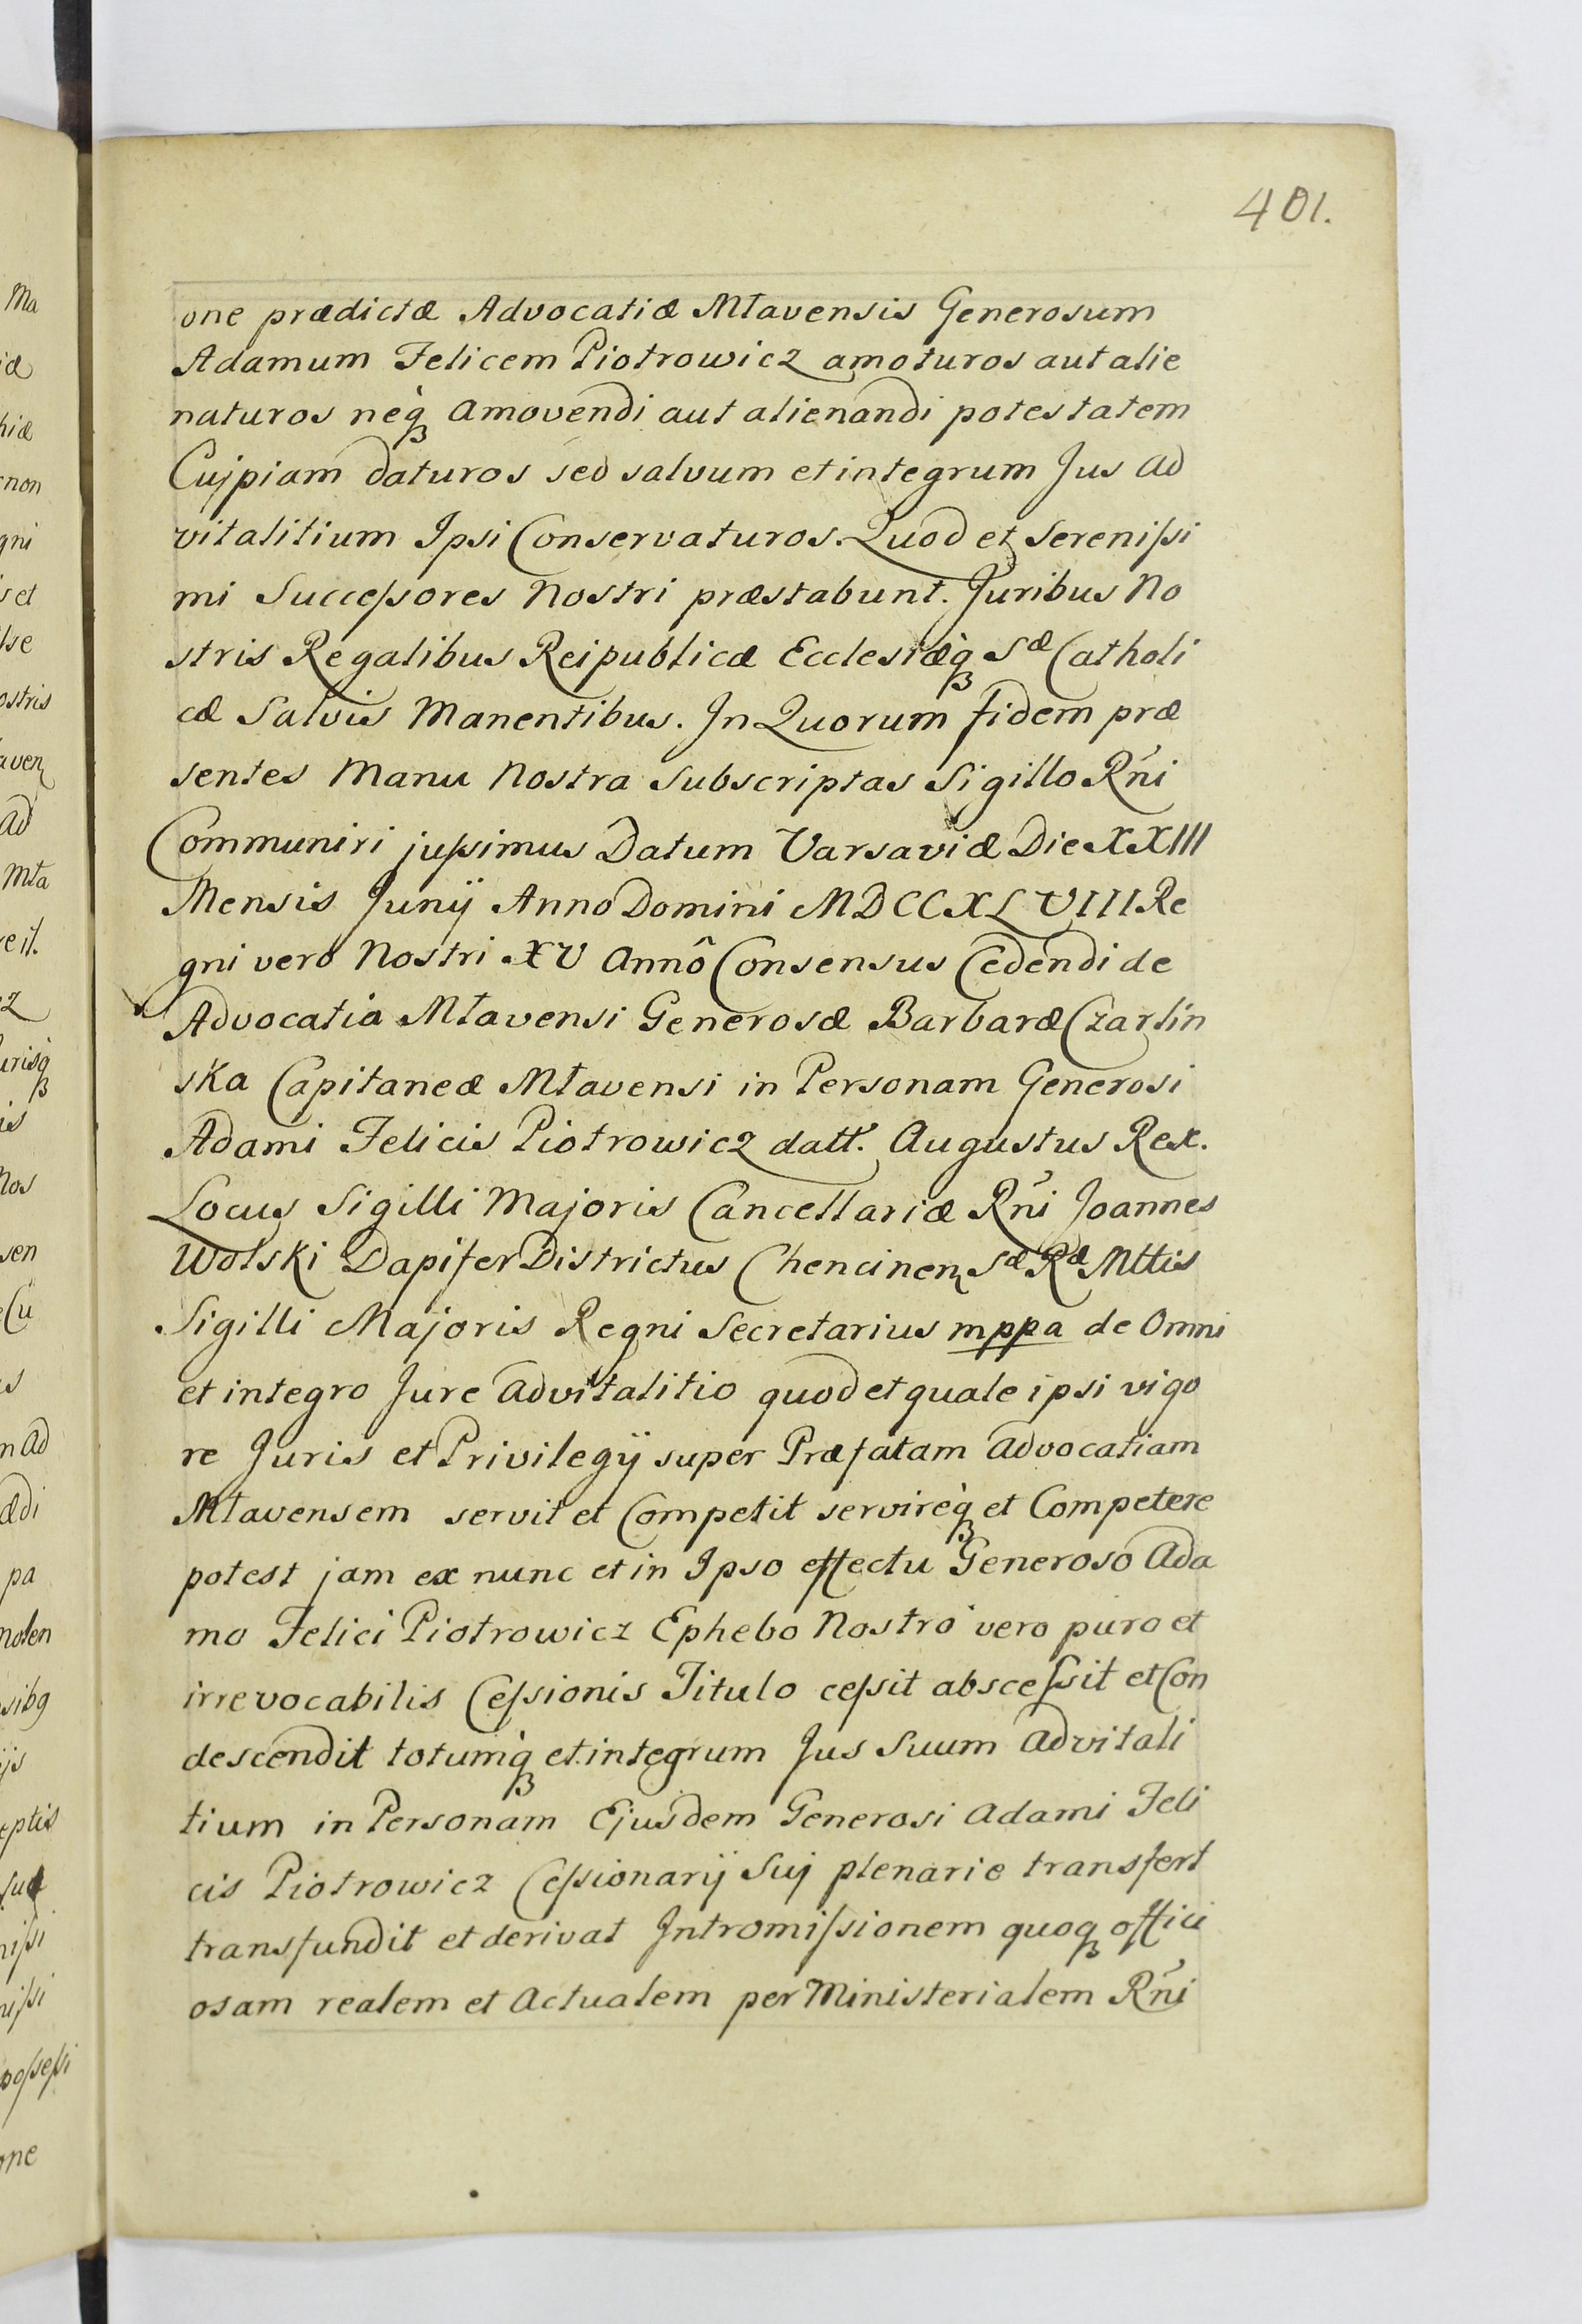 401.
one prædictæ Advocatiæ Mlavensis Generosum
Adamum Felicem Piotrowicz amoturos aut alie
naturos neq̀ꝫ amovendi aut alienandi potestatem
Cujpiam daturos sed salvum et integrum Jus ad
vitalitium Ipsi Conservaturos. Quod et Sereniſsi
mi Succeſsores Nostri præstabunt. Juribus No
stris Regalibus Reipublicæ Ecclesiæq̀ꝫ Sæ Catholi
cæ Salvis Manentibus. In Quorum fidem præ
sentes Manu Nostra Subscriptas Sigillo Rńi
Communiri juſsimus Datum Varsaviæ Die XXIII
Mensis Junÿ Anno Domini MDCCXLVIII Re
gni vero Nostri XV Annô Consensus Cedendi de
Advocatia Mlavensi Generosæ Barbaræ Czarlin
ska Capitaneæ Mlavensi in Personam Generosi
Adami Felicis Piotrowicz datt. Augustus Rex.
Locus Sigilli Majoris Cancellariæ Rńi Joannes
Wolski Dapifer Districtus Chencinen Sæ Ræ Mttis
Sigilli Majoris Regni Secretarius mppa de Omni
et integro Jure advitalitio quod et quale ipsi vigo
re Juris et Privilegÿ super Præfatam advocatiam
Mlavensem servit et Competit servireq̀ꝫ et Competere
potest jam ex nunc et in Ipso effectu Generoso Ada
mo Felici Piotrowicz Ephebo Nostro vero puro et
irrevocabilis Ceſsionis Titulo ceſsit absceſsit et Con
descendit totumq̀ꝫ et integrum Jus Suum advitali
tium in Personam Ejusdem Generosi Adami Feli
cis Piotrowicz Ceſsionarÿ Suj plenarie transfert
transfundit et derivat Intromiſsionem quoqꝫ offici
osam realem et Actualem per Ministerialem Rńi